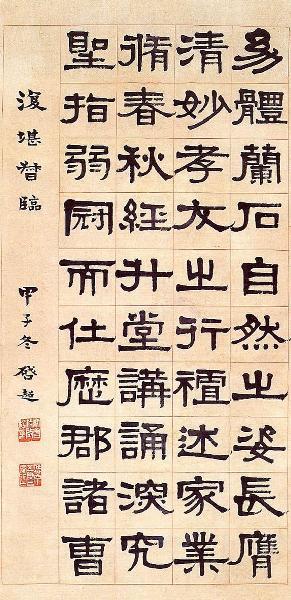 幼體蘭石自然之姿長膺
清妙孝友之行禔述家業
脩春秋經升堂講誦深究
聖指弱冠而仕歷郡諸曹
復堪督臨 甲子冬 啓超